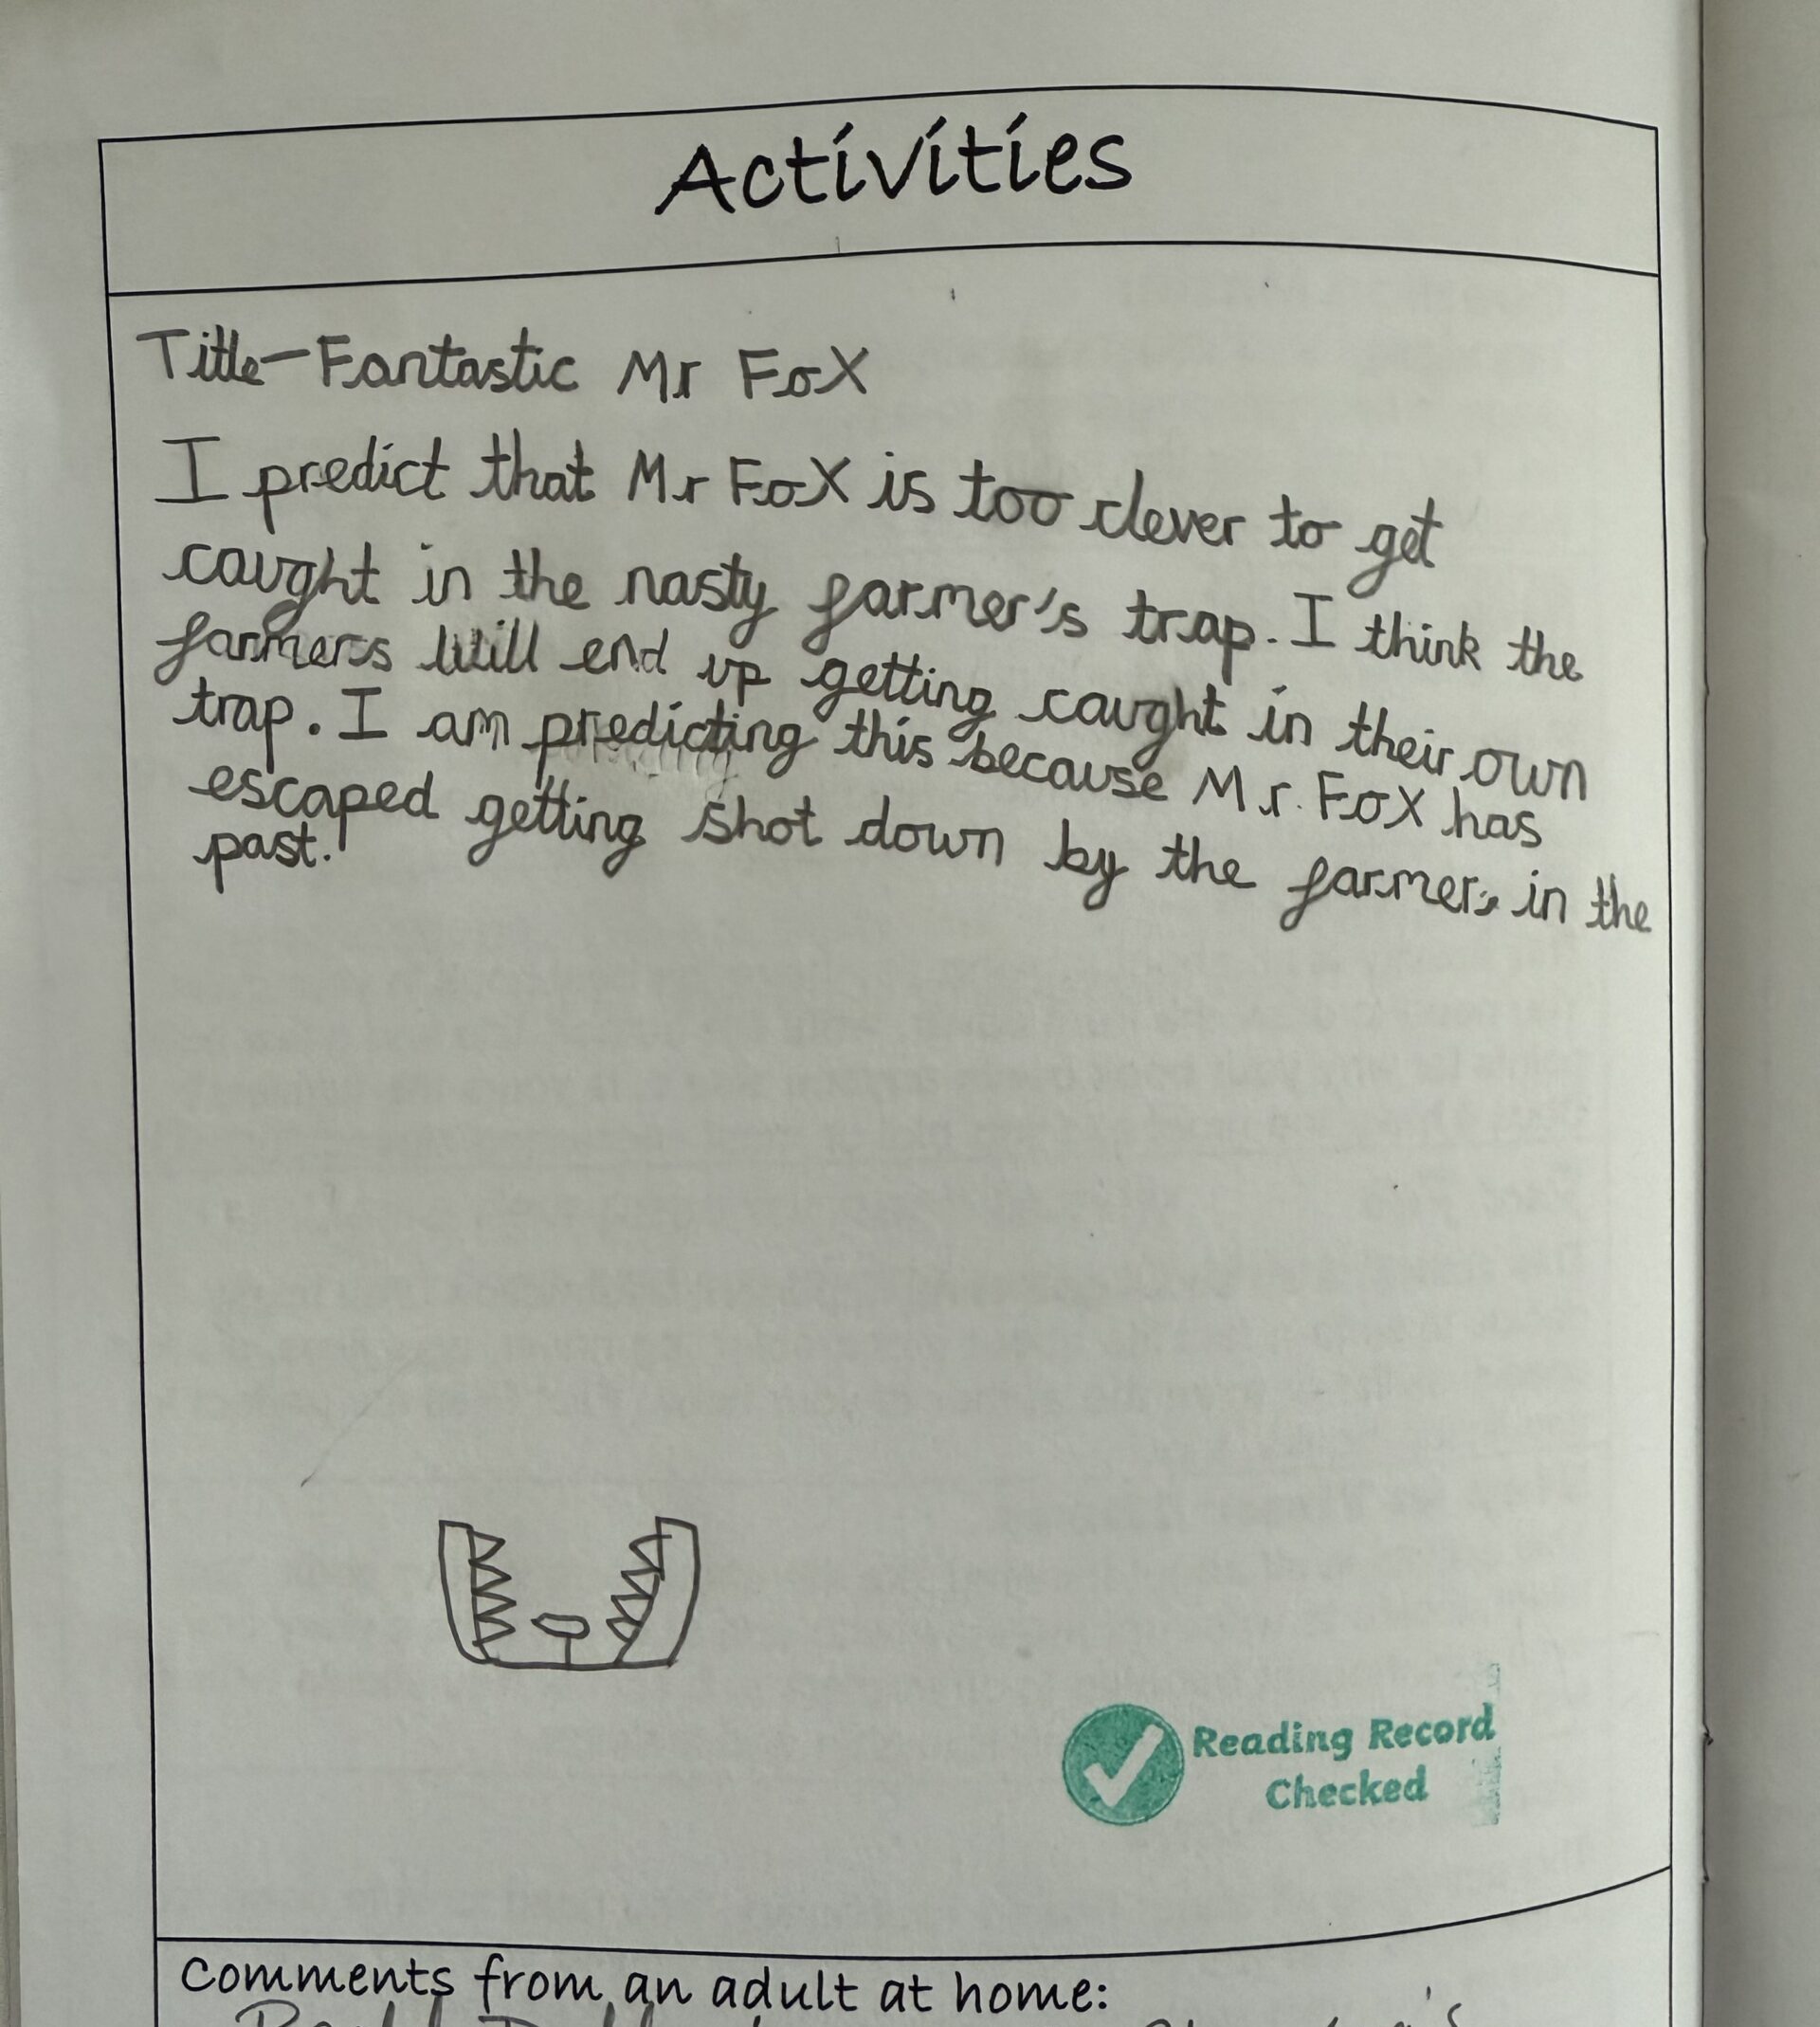 Activities
Title-Fantastic Mr FoX
I predict that Mr FoX is too clever to get
caught in the nasty farmer's trap. I think the
farmers will end up getting caught in their own
trap. I am predicting this because Mr. FoX has
escaped getting shot down by the farmers in the
past.
Reading Record
Checked
Comments from an adult at home: